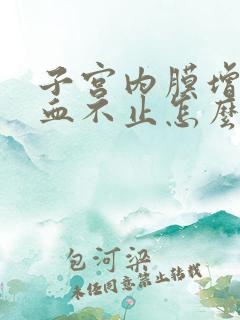 子宫内膜增
血不止怎么
包河梁
未经同意禁止转载